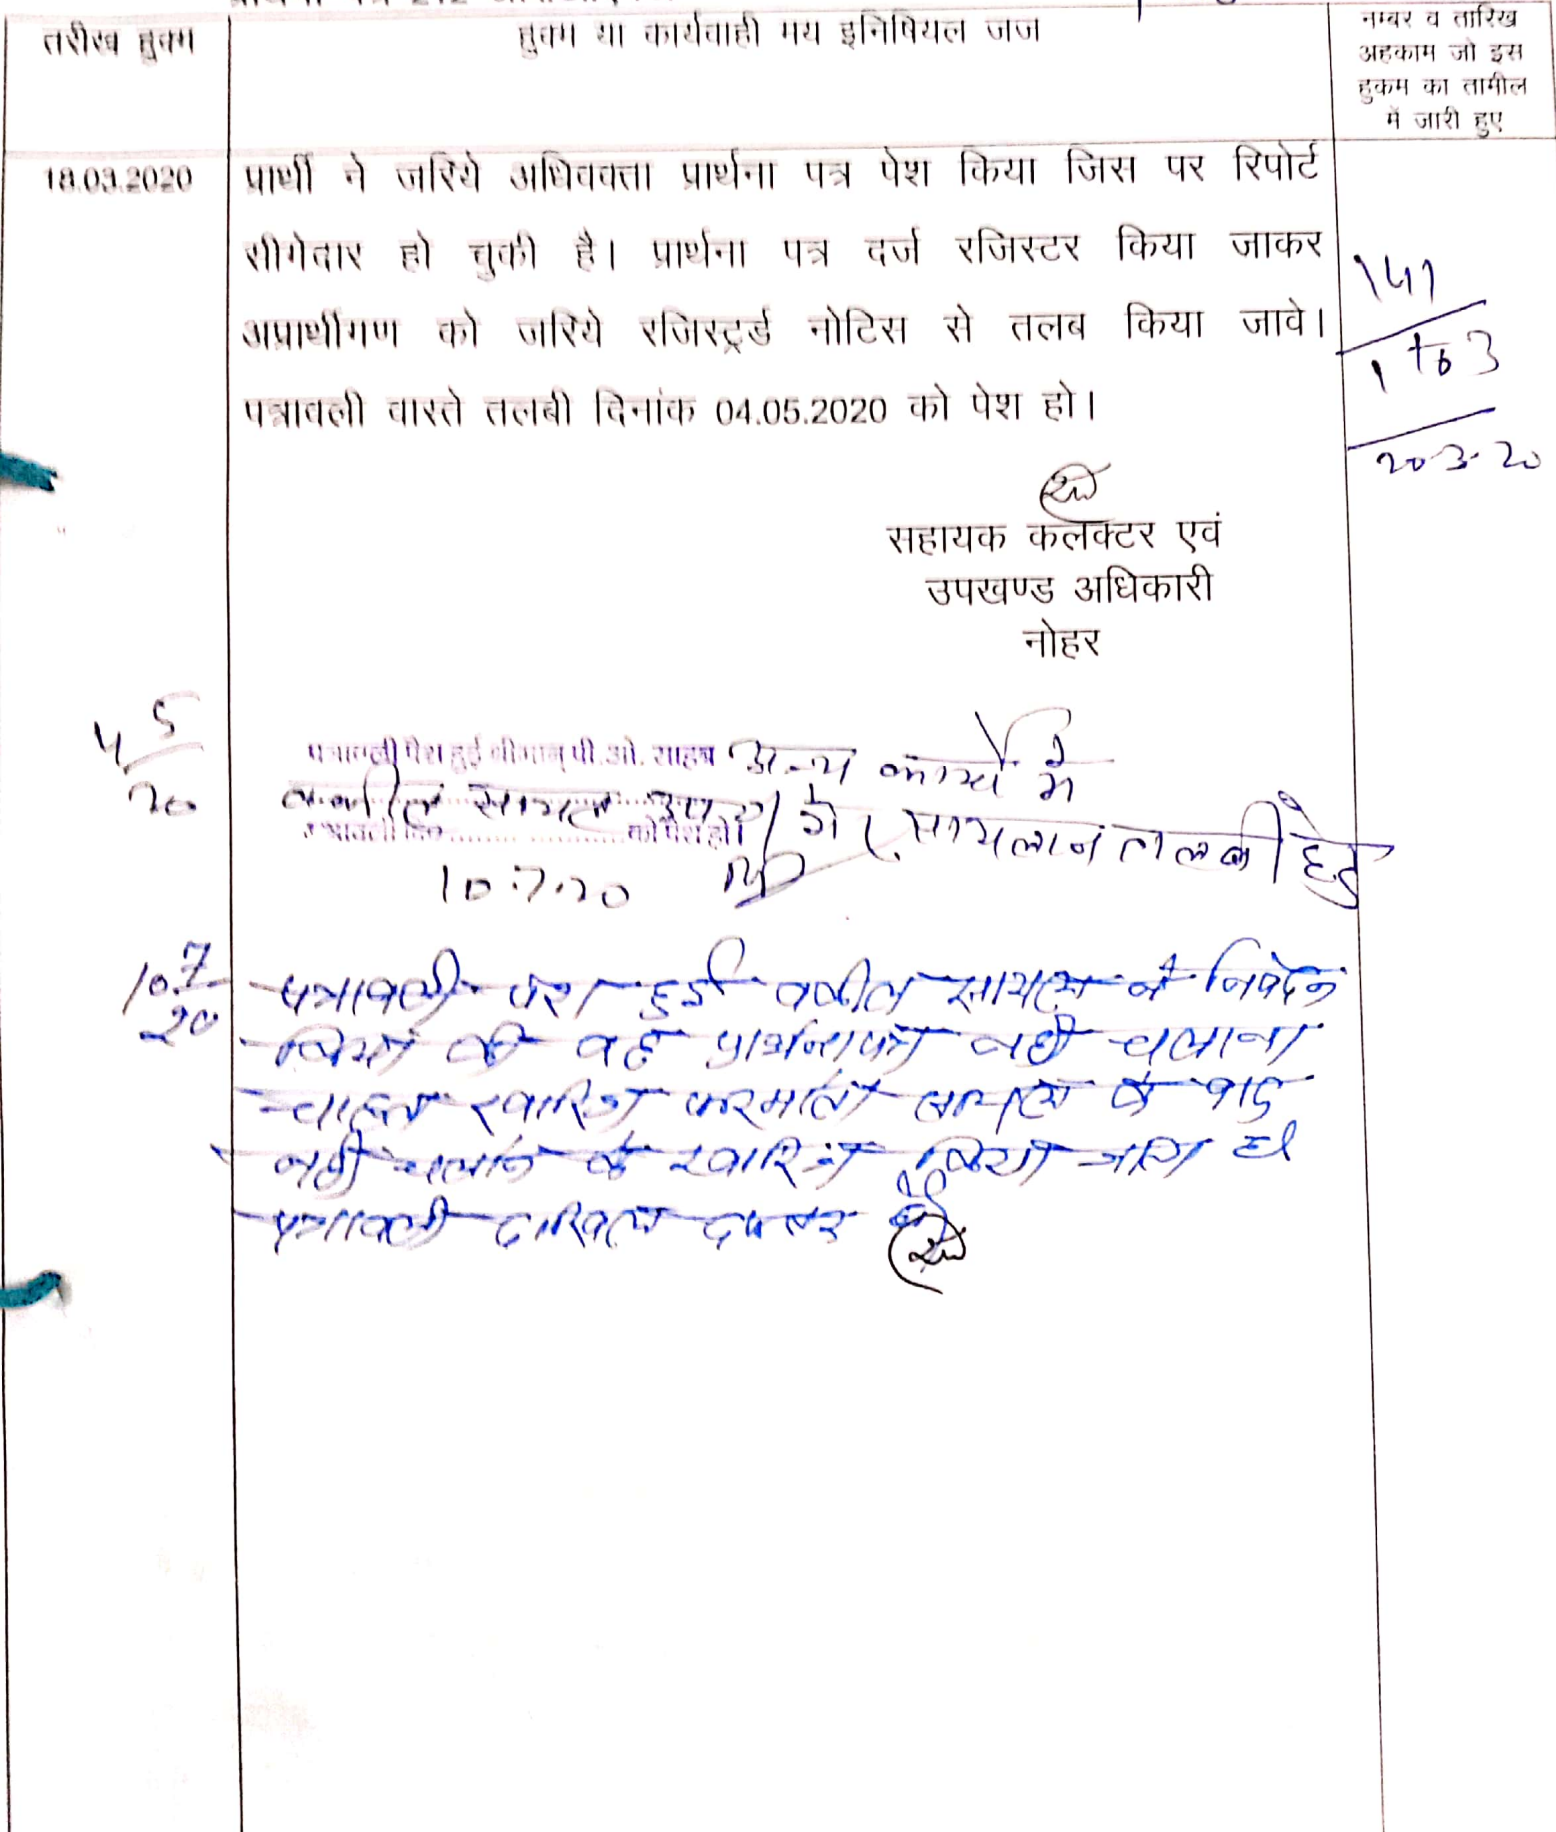 तारीख हुक्म
हुक्म या कार्यवाही मय इनिषियल जज
नम्बर व तारिख
अहकाम जो इस
हुकम का तामील
में जारी हुए
18.03.2020
प्रार्थी ने जरिये अधिवक्ता प्रार्थना पत्र पेश किया जिस पर रिपोर्ट
सीगेदार हो चुकी है। प्रार्थना पत्र दर्ज रजिस्टर किया जाकर
अप्रार्थीगण को जरिये रजिस्ट्रर्ड नोटिस से तलब किया जावे।
पत्रावली वास्ते तलबी दिनांक 04.05.2020 को पेश हो।
1 to 3
20.3.20
सहायक कलक्टर एवं
उपखण्ड अधिकारी
नोहर
4 5
20
पत्रावली पेश हुई श्रीमान् पी.ओ. साहब अन्य कार्य में
वकील सायल उप0/ गैर सायलान तलबी हेतु
पत्रावली दिन.......................को पेश हो।
10.7.20
10.7
20
पत्रावली पेश हुई वकील सायल ने निवेदन
किया की वह प्रार्थना पत्र नही चलाना
चाहता खारिज फरमावे सायल के
नही चलाने के खारिज किया जाता है
पत्रावली दाखिल दफ्तर हो